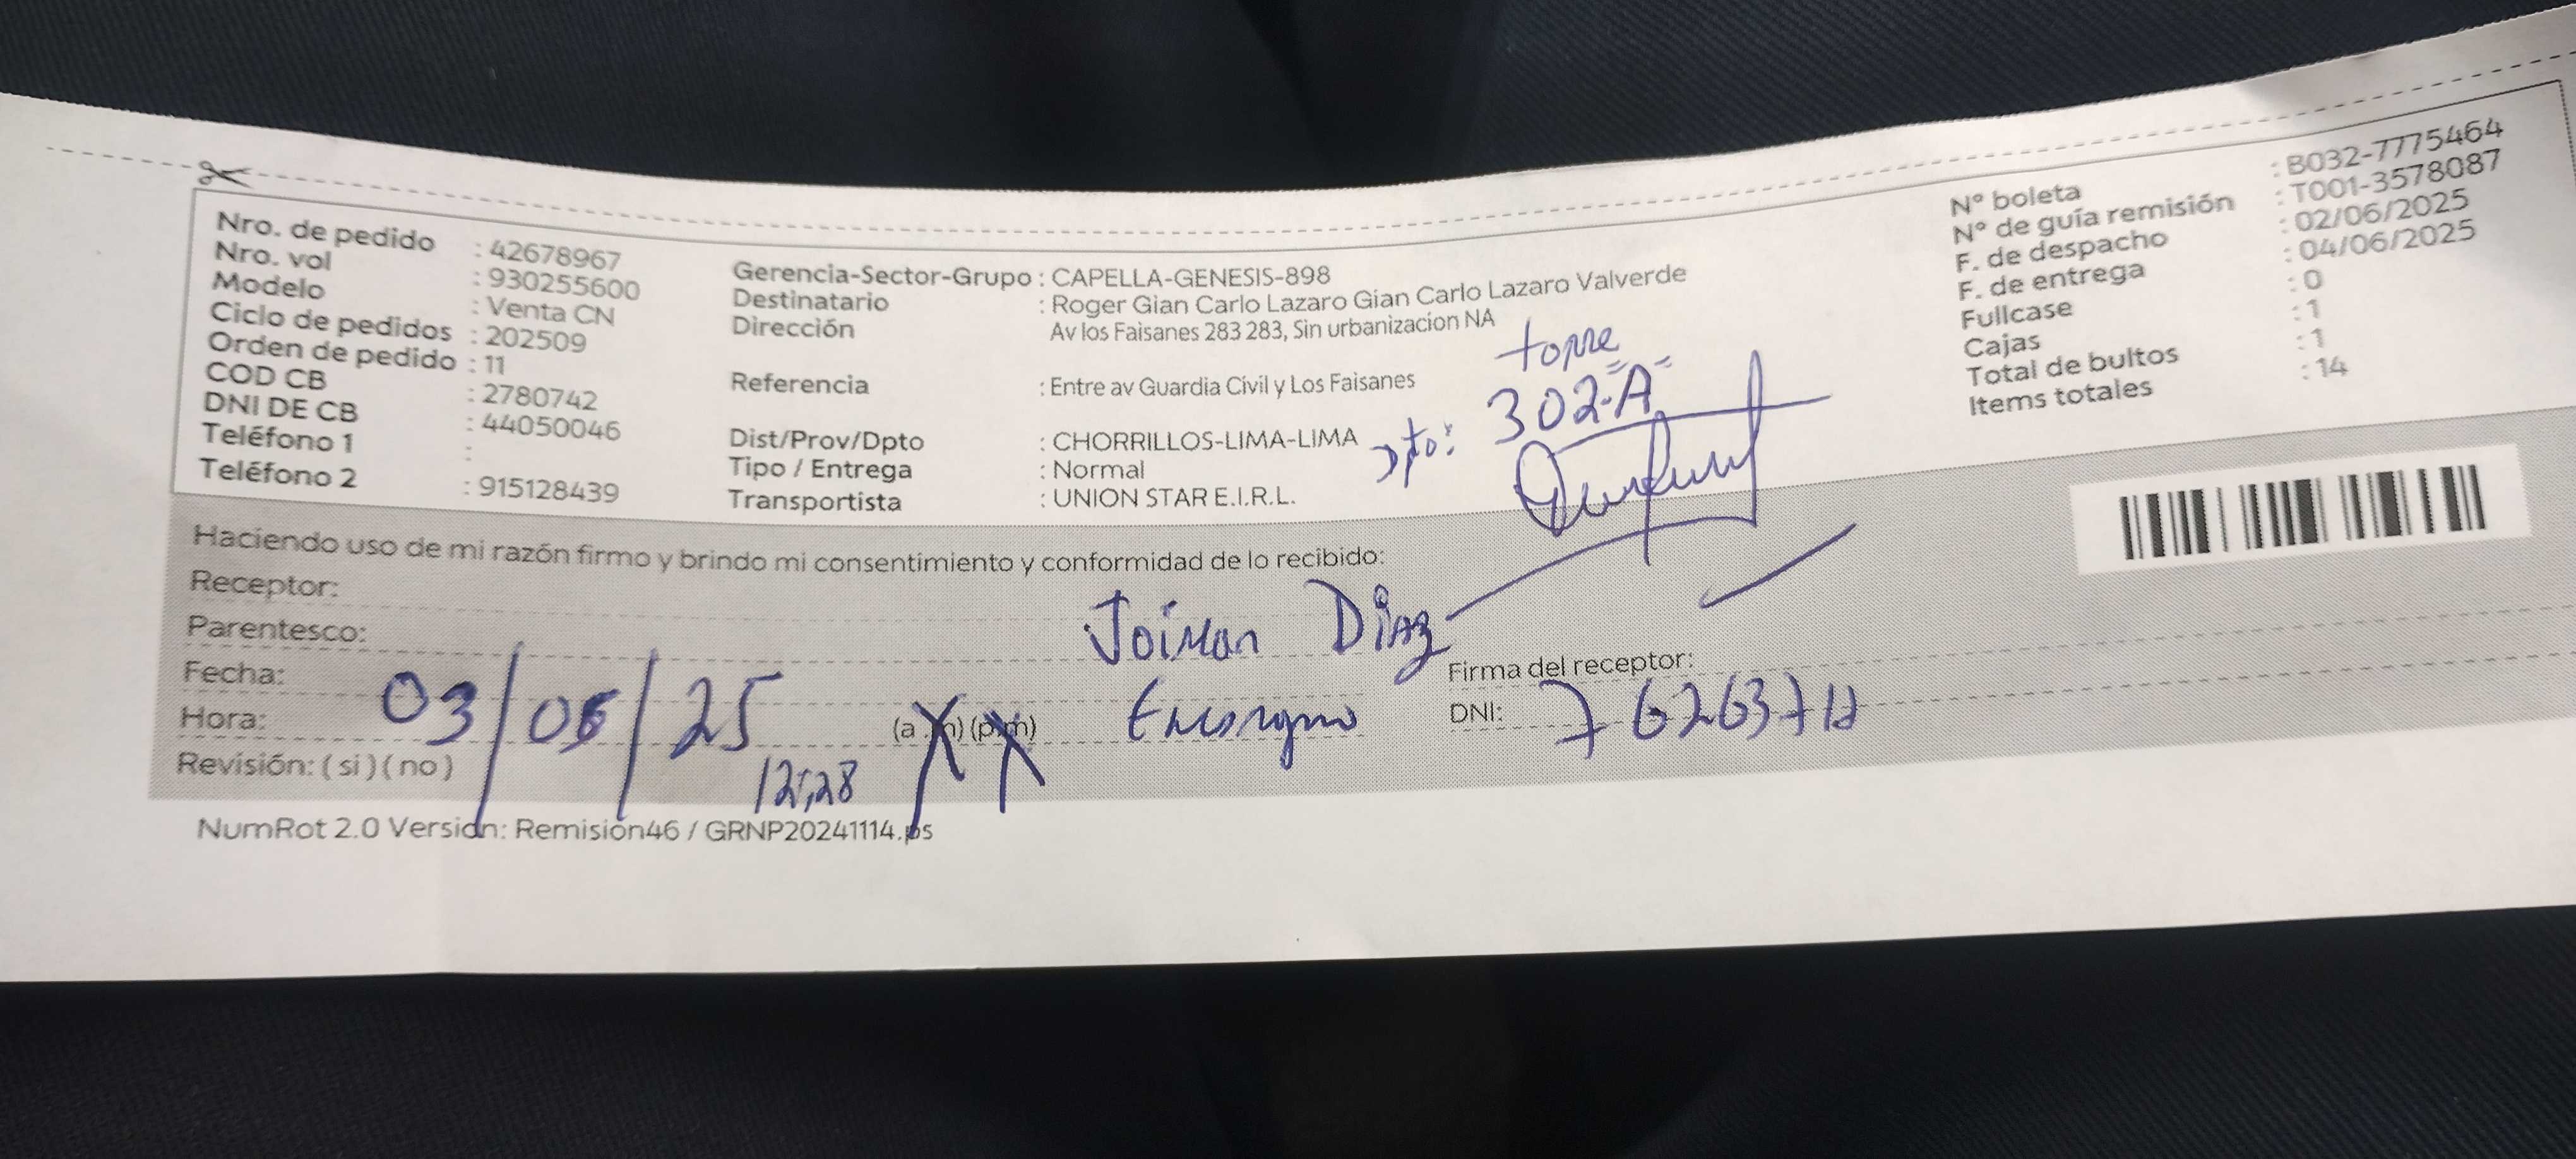 Nro. de pedido : 42678967
Nro. vol : 930255600
Modelo : Venta CN
Ciclo de pedidos : 202509
Orden de pedido : 11
COD CB : 2780742
DNI DE CB : 44050046
Teléfono 1 :
Teléfono 2 : 915128439
Gerencia-Sector-Grupo : CAPELLA-GENESIS-898
Destinatario : Roger Gian Carlo Lazaro Gian Carlo Lazaro Valverde
Dirección Av los Faisanes 283 283, Sin urbanizacion NA
Referencia : Entre av Guardia Civil y Los Faisanes
Dist/Prov/Dpto : CHORRILLOS-LIMA-LIMA
Tipo / Entrega : Normal
Transportista : UNION STAR E.I.R.L.
torre
Dpto: 302 "A"
N° boleta : B032-7775464
N° de guía remisión : T001-3578087
F. de despacho : 02/06/2025
F. de entrega : 04/06/2025
Fullcase : 0
Cajas : 1
Total de bultos : 1
Items totales : 14
Haciendo uso de mi razón firmo y brindo mi consentimiento y conformidad de lo recibido:
Receptor:
Parentesco: Joiman Diaz
Fecha: 03/06/25
Firma del receptor:
Hora: 12:28 (a.m) (p.m)
DNI:
Revisión: ( si ) ( no )
NumRot 2.0 Version: Remisión46 / GRNP20241114.ps